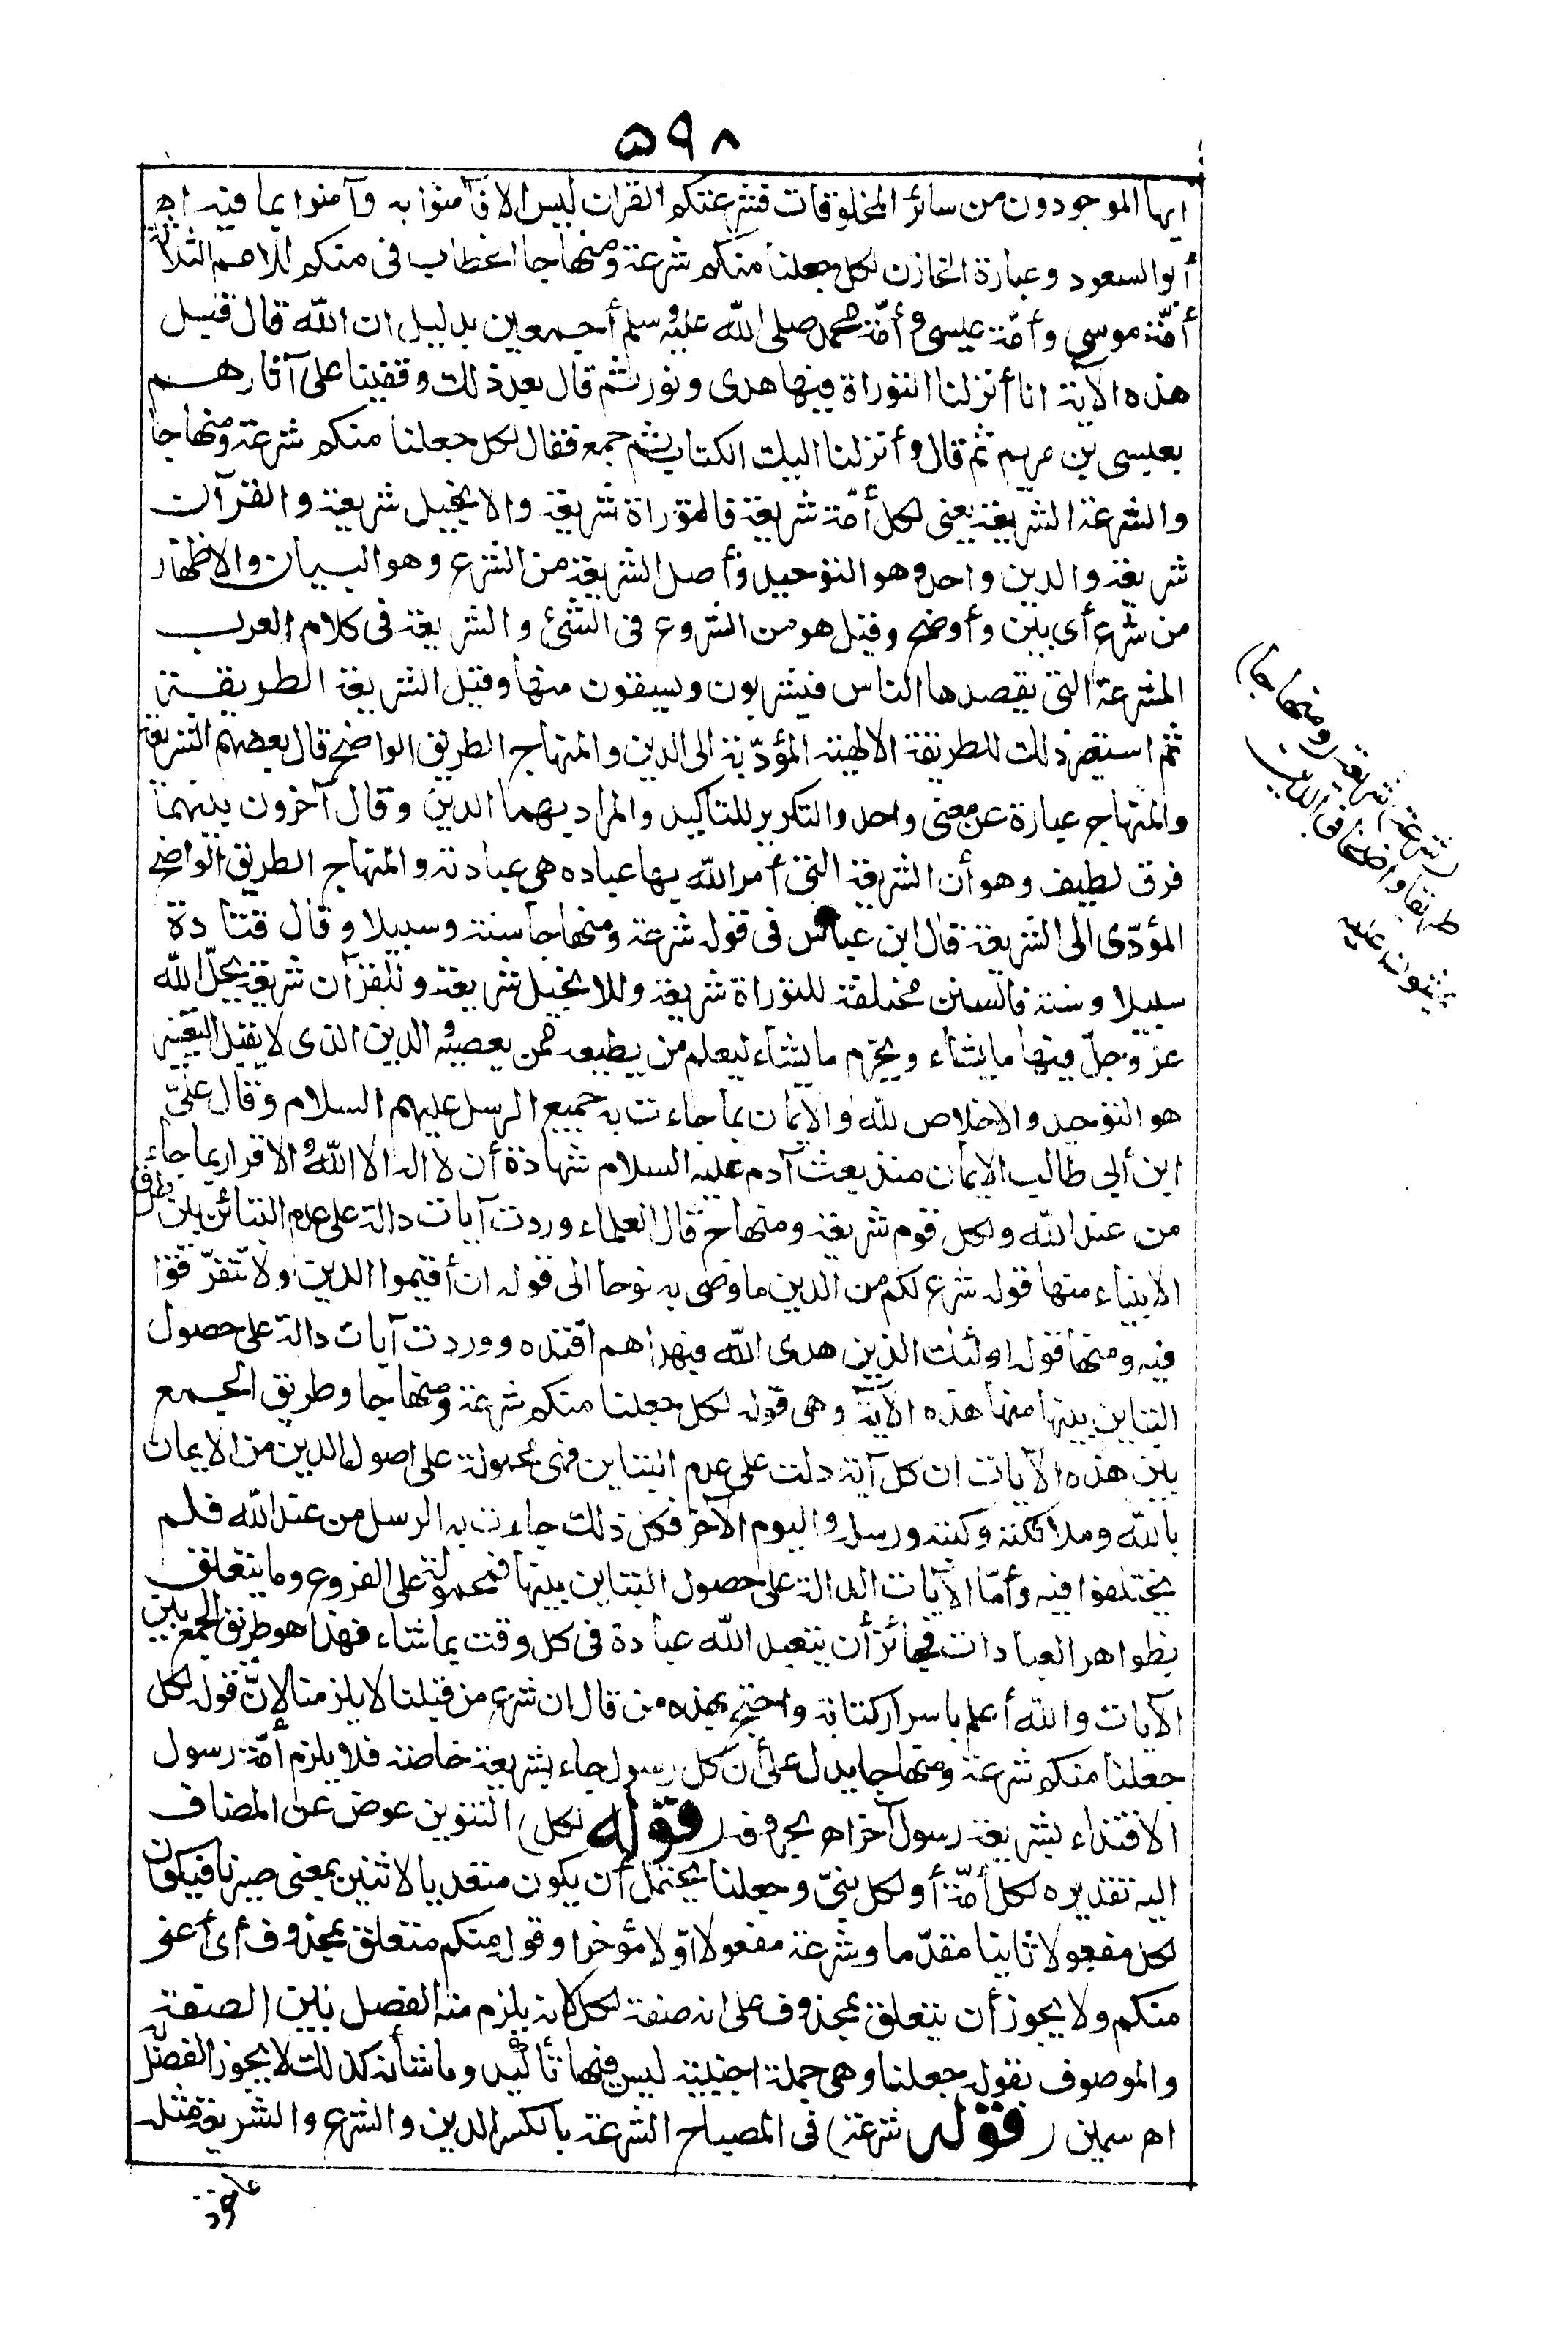 ۵۹۸
ايها الموجودون من سائر المخلوقات فشرعتكم القرآن ليس الا فآمنوا به وآمنوا بما فيه اه
أبو السعود وعبارة الخازن لكل جعلنا منكم شرعة ومنهاجا الخطاب فى منكم للامم الثلاثة
أمّة موسى وأمّة عيسى وأمّة محمد صلى الله عليه وسلم أجمعين بدليل ان الله قال قبل
هذه الآية انا أنزلنا التوراة فيها هدى ونور ثم قال بعد ذلك وقفينا على آثارهم
بعيسى بن مريم ثم قال وأنزلنا اليك الكتاب ثم جمع فقال لكل جعلنا منكم شرعة ومنهاجا
والشرعة الشريعة يعنى لكل أمّة شريعة فالتوراة شريعة والانجيل شريعة والقرآن
شريعة والدين واحد وهو التوحيد وأصل الشريعة من الشرع وهو البيان والاظهار
من شرع أى بين وأوضح وقيل هو من الشروع فى الشئ والشريعة فى كلام العرب
المشرعة التى يقصدها الناس فيشربون ويسقون منها وقيل الشريعة الطريقة
ثم استعير ذلك للطريقة الالهية المؤدّية الى الدين والمنهاج الطريق الواضح قال بعضهم الشريعة
والمنهاج عبارة عن معنى واحد والتكرير للتاكيد والمراد بهما الدين وقال آخرون بينهما
فرق لطيف وهو أن الشريعة التى أمر الله بها عباده هى عبادته والمنهاج الطريق الواضح
المؤدّى الى الشريعة قال ابن عباس فى قوله شرعة ومنهاجا سنة وسبيلا وقال قتادة
سبيلا وسنة فالسنن مختلفة للتوراة شريعة وللانجيل شريعة وللقرآن شريعة يحلّ الله
عز وجلّ فيها ما يشاء ويحرّم ما يشاء ليعلم من يطيعه ممن يعصيه والدين الذى لا يقبل التغيير
هو التوحيد والاخلاص لله والايمان بما جاءت به جميع الرسل عليهم السلام وقال علىّ
ابن أبى طالب الايمان منذ بعث آدم عليه السلام شهادة أن لا اله الا الله والاقرار بما جاء
من عند الله ولكل قوم شريعة ومنهاج قال العلماء وردت آيات دالة على عدم التبائن بين طرق
الانبياء منها قوله شرع لكم من الدين ما وصى به نوحا الى قوله ان أقيموا الدين ولا تتفرّقوا
فيه ومنها قوله اولئك الذين هدى الله فبهداهم اقتده ووردت آيات دالة على حصول
التباين بينها منها هذه الآية وهى قوله لكل جعلنا منكم شرعة ومنهاجا وطريق الجمع
بين هذه الآيات ان كل آية دلت على عدم التباين فهى محمولة على اصول الدين من الايمان
بالله وملائكته وكتبه ورسله واليوم الآخر فكل ذلك جاءت به الرسل من عند الله فلم
يختلفوا فيه وأمّا الآيات الدالة على حصول التباين بينها فمحمولة على الفروع وما يتعلق
بظواهر العبادات فجائز أن يتعبد الله عباده فى كل وقت بما شاء فهذا هو طريق الجمع بين
الآيات والله أعلم باسرار كتابه واحتج بهذه من قال ان شرع من قبلنا لا يلزمنا لانّ قوله لكل
جعلنا منكم شرعة ومنهاجا يدل على أن كل رسول جاء بشريعة خاصة فلا يلزم أمّة رسول
الاقتداء بشريعة رسول آخر اه بحروفه (قوله لكل) التنوين عوض عن المضاف
اليه تقديره لكل أمّة أو لكل نبىّ وجعلنا يحتمل أن يكون متعديا لاثنين بمعنى صيرنا فيكون
لكل مفعولا ثانيا مقدّما وشرعة مفعولا اوّلا مؤخرا وقوله منكم متعلق بمحذوف أى أعنى
منكم ولا يجوز أن يتعلق بمحذوف على انه صفة لكل لانه يلزم منه الفصل بين الصفة
والموصوف بقوله جعلنا وهى جملة اجنبية ليس فيها تأكيد وما شأنه كذلك لا يجوز الفصل به
اه سمين (قوله شرعة) فى المصباح الشرعة بالكسر الدين والشرع والشريعة مثله
(شرعة) شريعة (ومنهاجا)
طريقا واضحا فى الدين
يمشون عليه